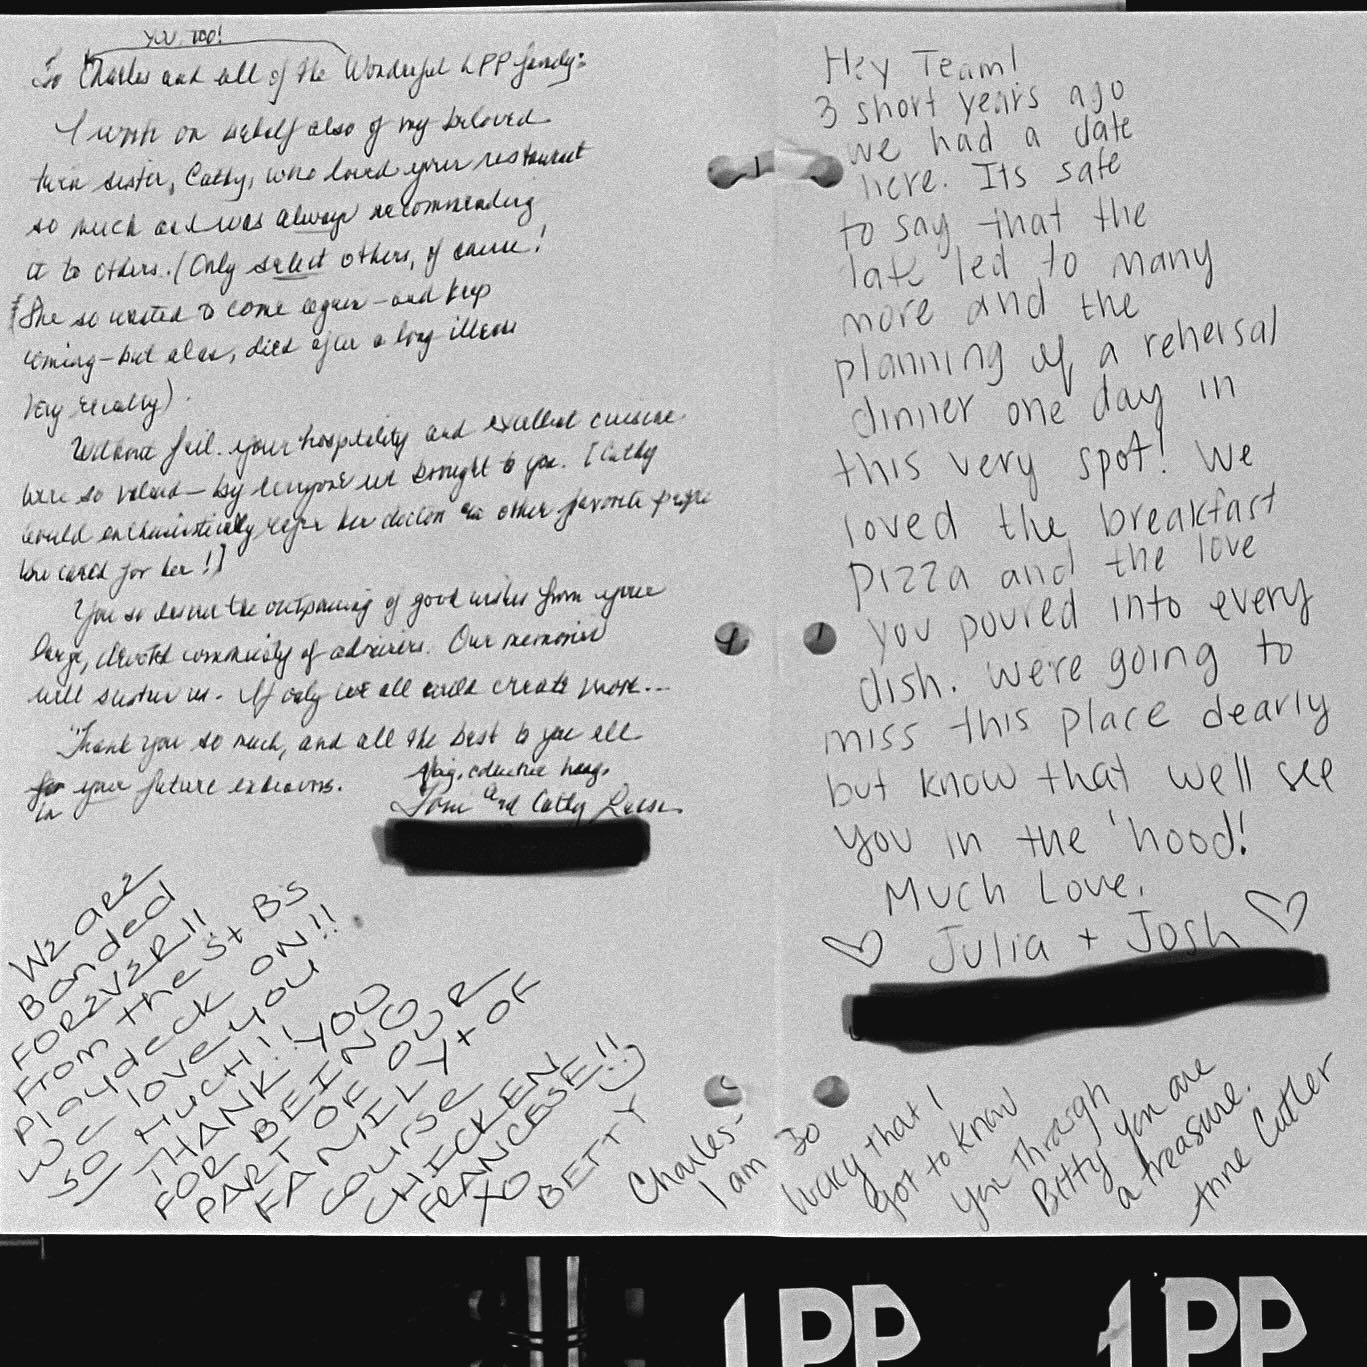 YOU, TOO!
To Charles and all of the Wonderful LPP family:
I write on behalf also of my beloved
twin sister, Cathy, who loved your restaurant
so much and was always recommending
it to others. (Only select others, of course!
She so wanted to come again - and keep
coming - but alas, died after a long illness
very recently).
Without fail, your hospitality and excellent cuisine
were so valued - by everyone we brought to you. [Cathy
would enthusiastically refer her doctors or other favorite people
who cared for her!]
You so deserve the outpouring of good wishes from your
large, devoted community of admirers. Our memories
will sustain us. If only we all could create more...
Thank you so much, and all the best to you all
for your future endeavors.
in
A big, collective hug,
and Cathy
We are
Bonded
FOREVER!!
From the St B's
Playdeck ON!!
We love you
so MUCH!!
THANK YOU
FOR BEING
PART OF OUR
FAMILY + OF
COURSE
CHICKEN
FRANCESE!!
XO
BETTY
Hey Team!
3 short years ago
we had a date
here. Its safe
to say that the
late led to many
more and the
planning of a rehersal
dinner one day in
this very spot! We
loved the breakfast
pizza and the love
you poured into every
dish. We're going to
miss this place dearly
but know that we'll see
you in the 'hood!
Much Love,
♡ Julia + Josh ♡
Charles-
I am so
lucky that I
got to know
you through
Betty you are
a treasure.
Anne Cutler
LPP
LPP